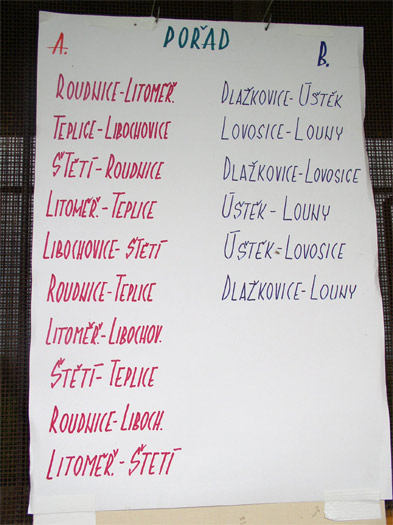 POŘAD
A.
ROUDNICE-LITOMĚŘ.
TEPLICE-LIBOCHOVICE
ŠTĚTÍ-ROUDNICE
LITOMĚŘ.-TEPLICE
LIBOCHOVICE-ŠTĚTÍ
ROUDNICE-TEPLICE
LITOMĚŘ.-LIBOCHOV.
ŠTĚTÍ-TEPLICE
ROUDNICE-LIBOCH.
LITOMĚŘ.-ŠTĚTÍ
B.
DLAŽKOVICE-ÚŠTĚK
LOVOSICE-LOUNY
DLAŽKOVICE-LOVOSICE
ÚŠTĚK-LOUNY
ÚŠTĚK-LOVOSICE
DLAŽKOVICE-LOUNY